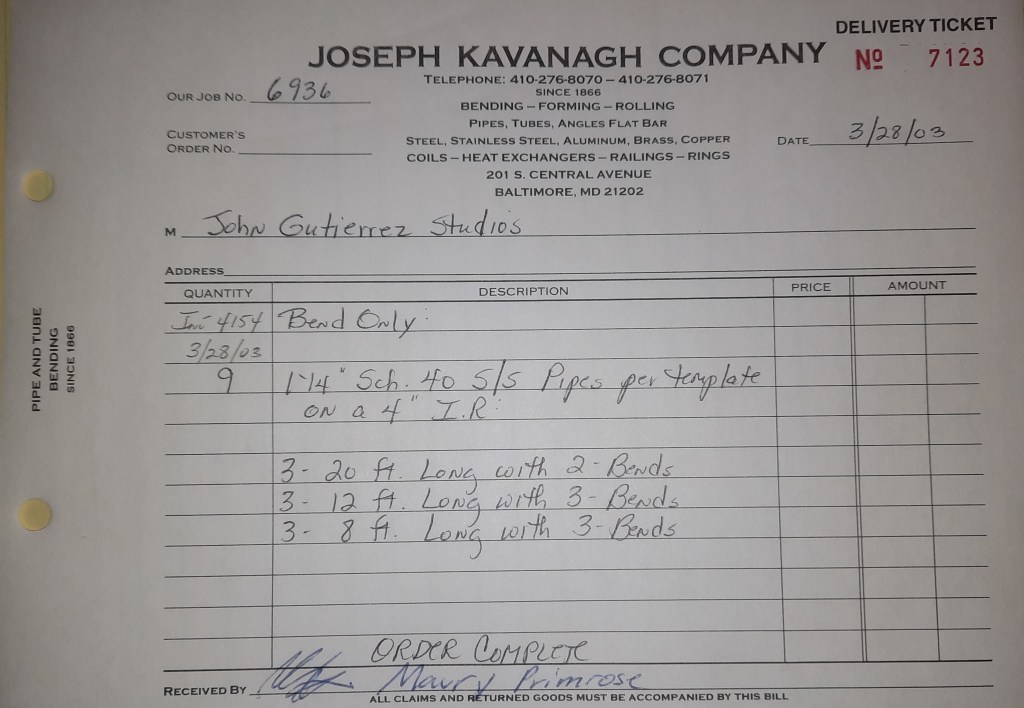 DELIVERY TICKET
JOSEPH KAVANAGH COMPANY
Nº 7123
TELEPHONE: 410-276-8070 – 410-276-8071
SINCE 1866
OUR JOB NO. 6936
BENDING – FORMING – ROLLING
PIPES, TUBES, ANGLES FLAT BAR
CUSTOMER'S
ORDER NO.
STEEL, STAINLESS STEEL, ALUMINUM, BRASS, COPPER
DATE 3/28/03
COILS – HEAT EXCHANGERS – RAILINGS – RINGS
201 S. CENTRAL AVENUE
BALTIMORE, MD 21202
M John Gutierrez Studios
ADDRESS
QUANTITY DESCRIPTION PRICE AMOUNT
Inv 4154 Bend Only:
3/28/03
9 1 1/4" Sch. 40 S/S Pipes per template
on a 4" I.R:
3- 20 ft. Long with 2-Bends
3- 12 ft. Long with 3-Bends
3- 8 ft. Long with 3-Bends
ORDER COMPLETE
RECEIVED BY Maury Primrose
ALL CLAIMS AND RETURNED GOODS MUST BE ACCOMPANIED BY THIS BILL
PIPE AND TUBE
BENDING
SINCE 1866